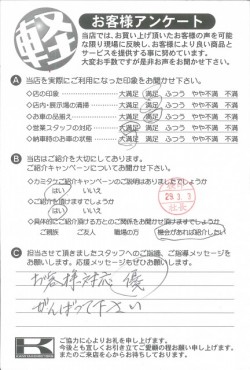 軽
お客様アンケート
当店では、お買い上げ頂いたお客様の声を可能
な限り現場に反映し、お客様により良い商品と
サービスを提供する事に努めています。
大変お手数ですが是非お声をお聞かせ下さい。
A 当店を実際にご利用になった印象をお聞かせ下さい。
◇店の印象 大満足 満足 ふつう やや不満 不満
◇店内・展示場の清掃 大満足 満足 ふつう やや不満 不満
◇お車の品揃え 大満足 満足 ふつう やや不満 不満
◇営業スタッフの対応 大満足 満足 ふつう やや不満 不満
◇納車時のお車の状態 大満足 満足 ふつう やや不満 不満
B 当店はご紹介を大切にしております。
ご紹介キャンペーンについてお聞かせ下さい。
◇カミタケご紹介キャンペーンのご説明はありましたでしょうか
はい いいえ
◇ご紹介を頂けますでしょうか
はい いいえ
29.3.3
◇具体的にご紹介頂ける方とのご関係をお聞かせ頂けますでしょうか
ご親族 ご友人 職場の方 機会があれば紹介したい
C 担当させて頂きましたスタッフへのご指摘、ご指導メッセージを
お願いします。応援メッセージもぜひお願いします。
お客様対応 優
がんばって下さい
K
ご協力に心よりお礼を申し上げます。
今後とも宜しくお引き立てご愛顧の程お願い申し上げます。
またのご来店を心からお待ちしております。